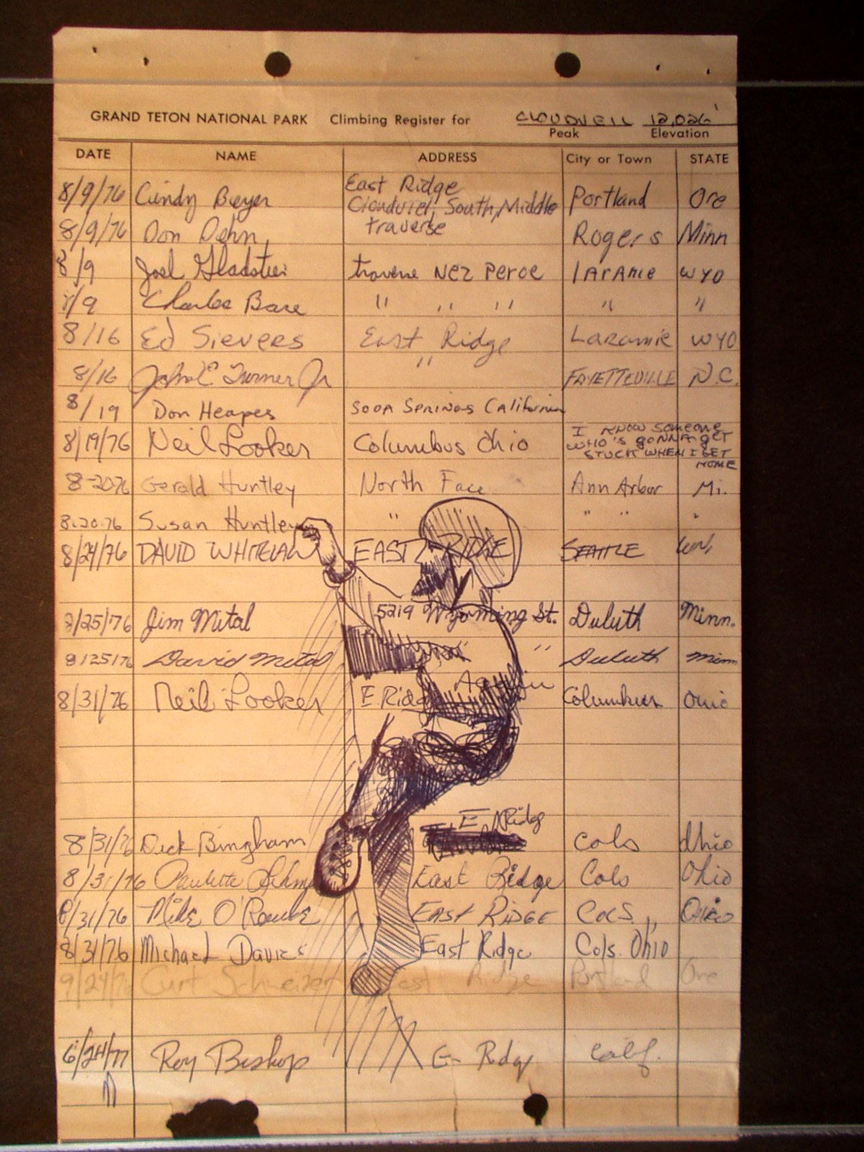 GRAND TETON NATIONAL PARK Climbing Register for CLOUDVEIL 12,026'
Peak Elevation
DATE NAME ADDRESS City or Town STATE
East Ridge
8/9/76 Cindy Beyer Cloudveil, South, Middle Portland Ore
traverse
8/9/76 Don Dehn Rogers Minn
8/9 Joel traverse Nez Perce Laramie WYO
/9 Charles Bare " " " " "
8/16 Ed Sievers East Ridge Laramie WYO
8/16 John E Turner Jr " FAYETTEVILLE N.C.
8/19 Don Heapes SODA SPRINGS California
8/19/76 Neil Looker Columbus Ohio I KNOW SOMEONE
WHO'S GONNA GET
STUCK WHEN I GET
HOME
8-20-76 Gerald Huntley North Face Ann Arbor Mi.
8-20-76 Susan Huntley " " " "
8/24/76 DAVID EAST RIDGE SEATTLE
/25/76 Jim Mital 5219 Wyoming St. Duluth Minn.
8/25/76 David Mital " Duluth Minn
8/31/76 Neil Looker E Ridge Again Columbus Ohio
8/31/76 Dick Bingham E Ridge Cols Ohio
8/31/76 Paulette East Ridge Cols Ohio
8/31/76 Mike O'Rourke EAST RIDGE COLS, OHIO
8/31/76 Michael Davies East Ridge Cols. Ohio
9/27/76 Curt Schmeizer East Ridge Portland Ore
6/24/77 Roy Bishop E- Rdg Calif.